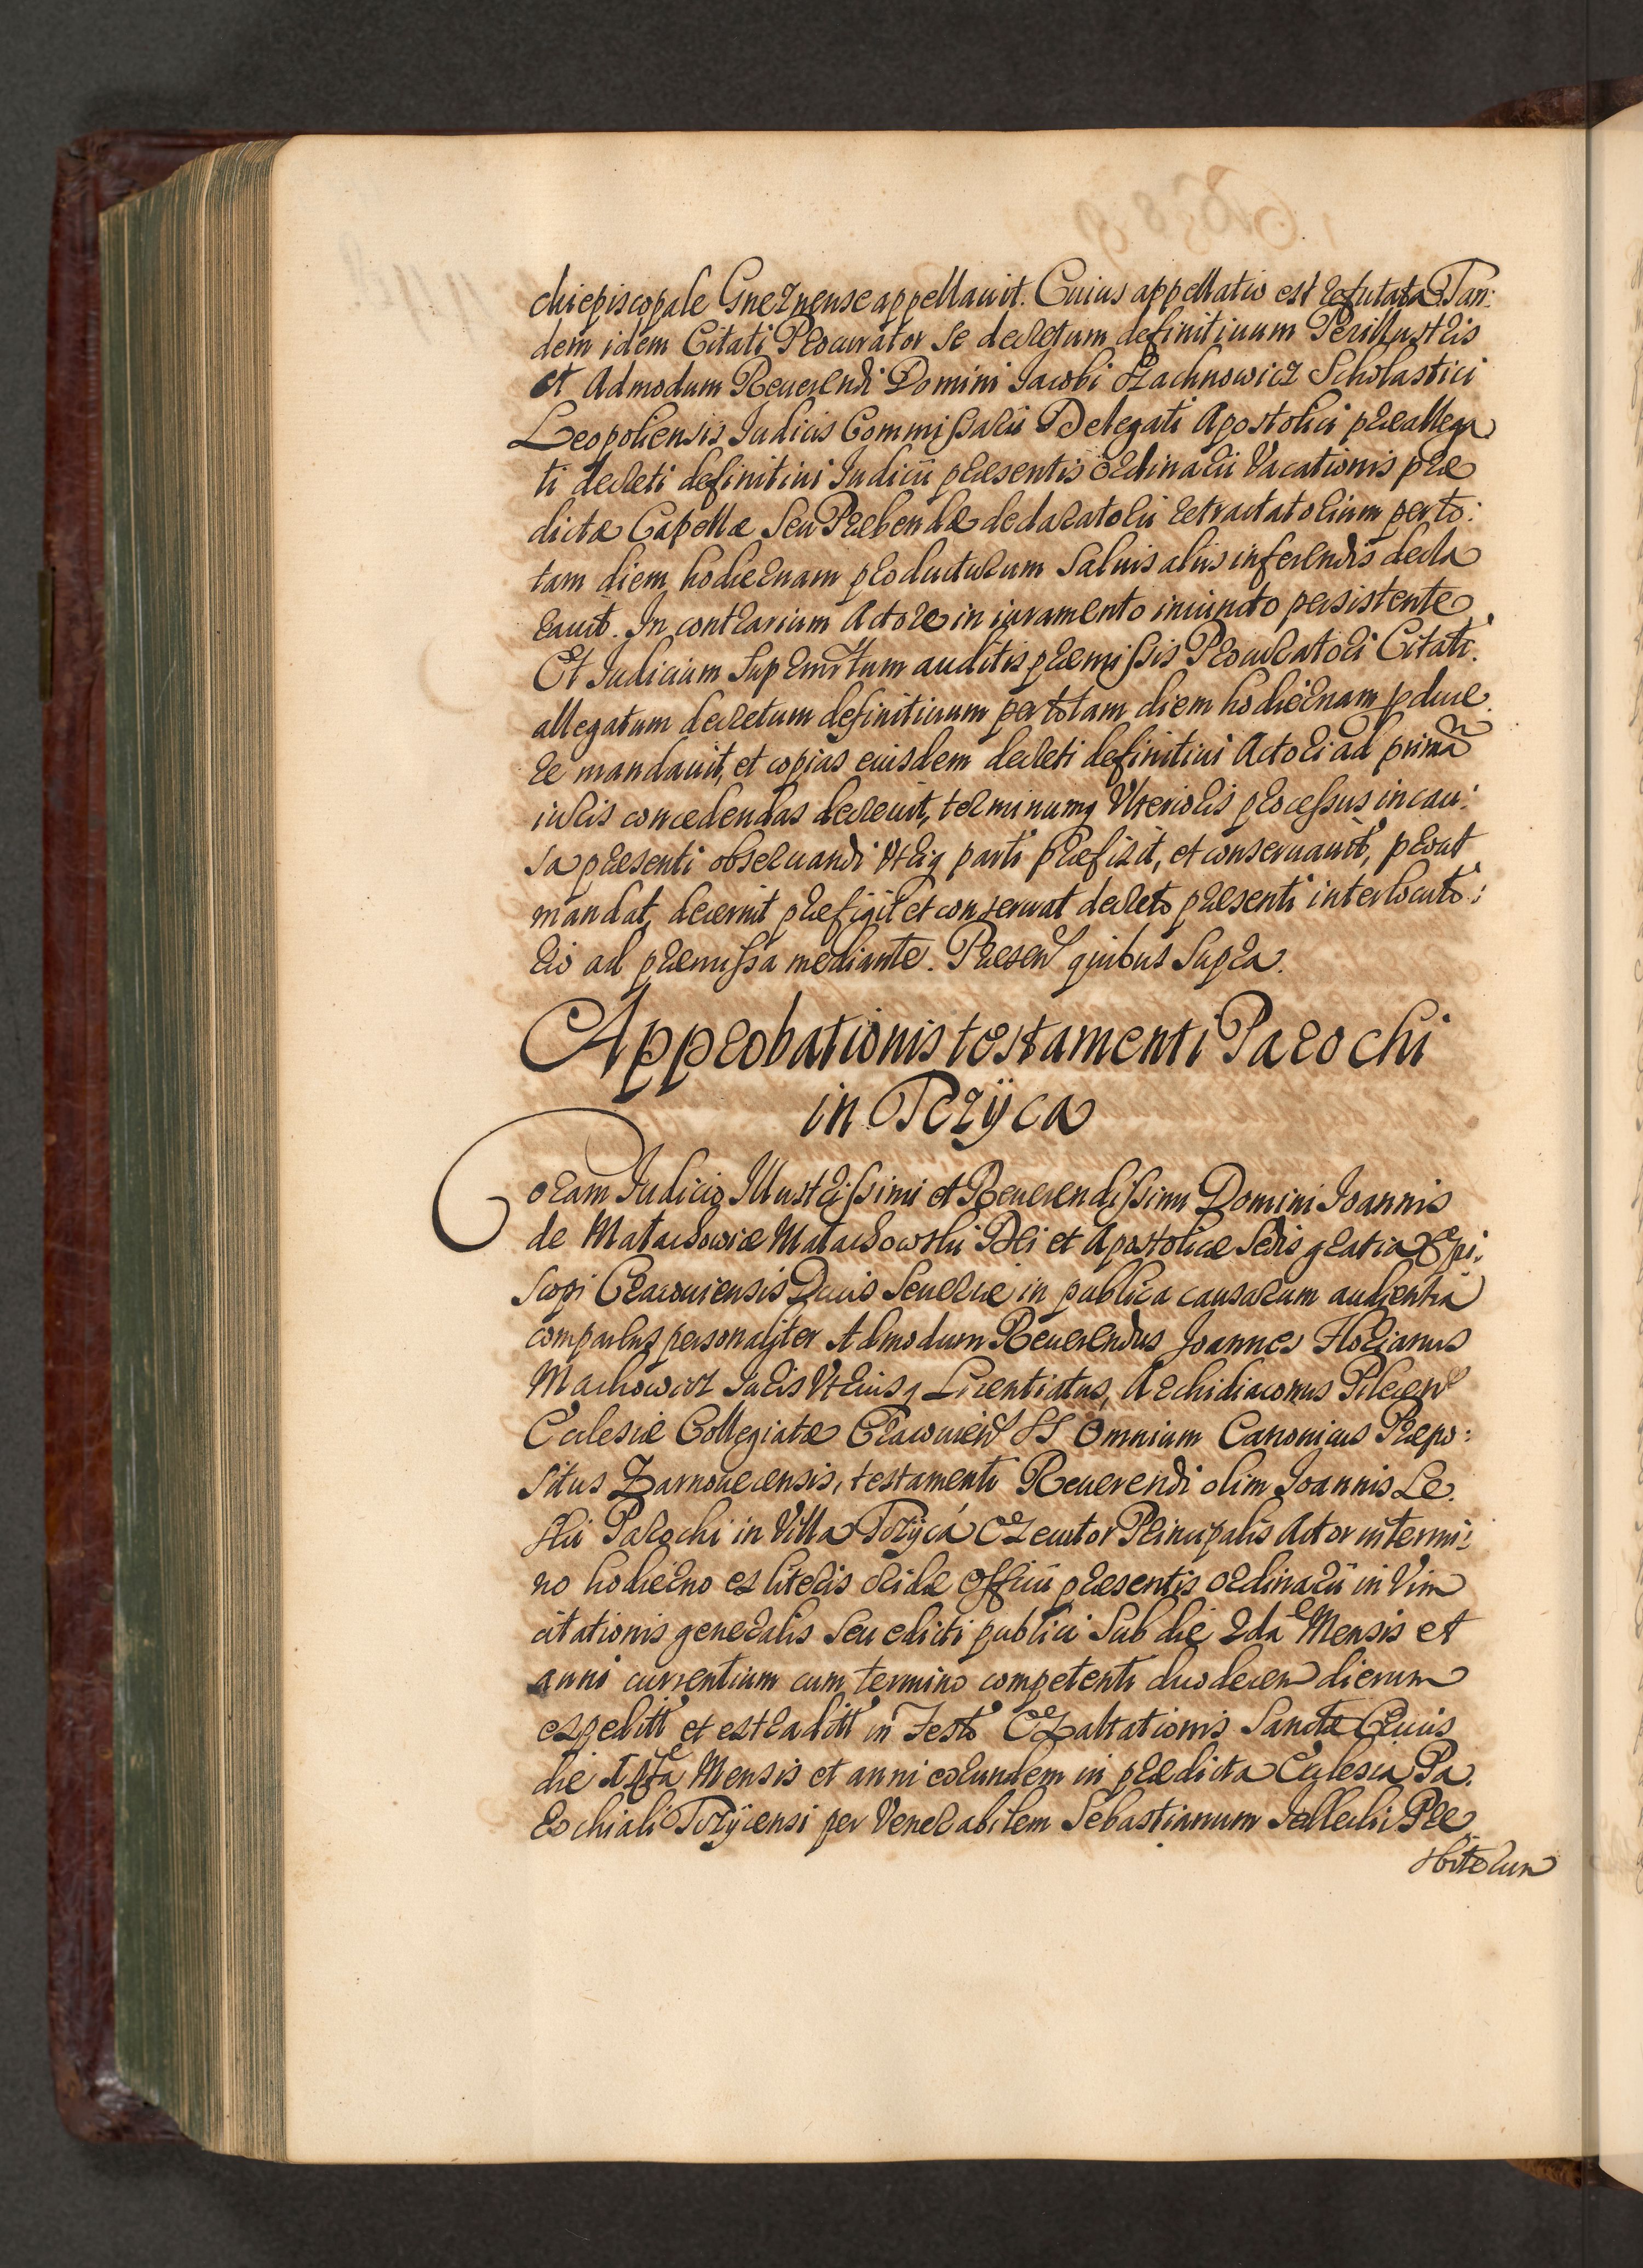 chiepiscopale Gneznense appellauit. Cuius appellatio est refutata. Tan:
dem idem Citati Procurator se decretum definitiuum Perillustris
et Admodum Reuerendi Domini Jacobi Szachnowicz Scholastici
Leopoliensis Judicis Commissarii Delegati Apostolici preallega
ti decreti definitiui Judicii presentis Ordinarii Vacationis præ
dictæ Capellæ Seu Præbendæ declaratorii retractatorium per to:
tam diem hodiernam producturum Saluis aliis inferendis decla
rauit. In contrarium Actore in iuramento iniuncto persistente
Et Judicium Supremitum auditis præmissis Procuratori Citati
allegatum decretum definitiuum per totam diem hodiernam pduce
re mandauit, et copias eiusdem decreti definitiui Actori ad primã
iuris concedendas decreuit, terminumq Vlterioris processus in cau:
sa præsenti obseruandi Vtriq parti Præfixit, et conseruauit, prout
mandat, decernit præfigit et conseruat decreto præsenti interlocuto:
rio ad premissa mediante. Presen quibus Supra.
Approbationis testamenti Parochi
in Tczÿca
Coram Judicio Illustrissimi et Reuerendissimi Domini Joannis
de Małachowice Małachowski Dei et Apostolicæ Sedis gratia Epi:
scopi Cracouiensis Ducis Seueriæ in publica causarum audientia
comparens personaliter Admodum Reuerendus Joannes Florianus
Machowicz Juris Vtriusq Licentiatus, Archidiaconus Pilecen
Ecclesiæ Collegiatæ Cracouien SS Omnium Canonicus Præpo:
situs Zarnouecensis, testamenti Reuerendi olim Joannis Le
ski Parochi in Villa Tczÿca Executor Principalis Actor in termi:
no hodierno ex literis Officii præsentis ordinarii in Vim
citationis generalis Seu edicti publici Sub die 2da Mensis et
anni currentium cum termino competenti duodecem dierum
expeditt et extraditt in Festo Exaltationis Sanctæ Crucis
die 14ta Mensis et anni eorundem in prædicta Ecclesia Pa
rochiali Tczÿcensi per Venerabilem Sebastianum Præ
sbiterum